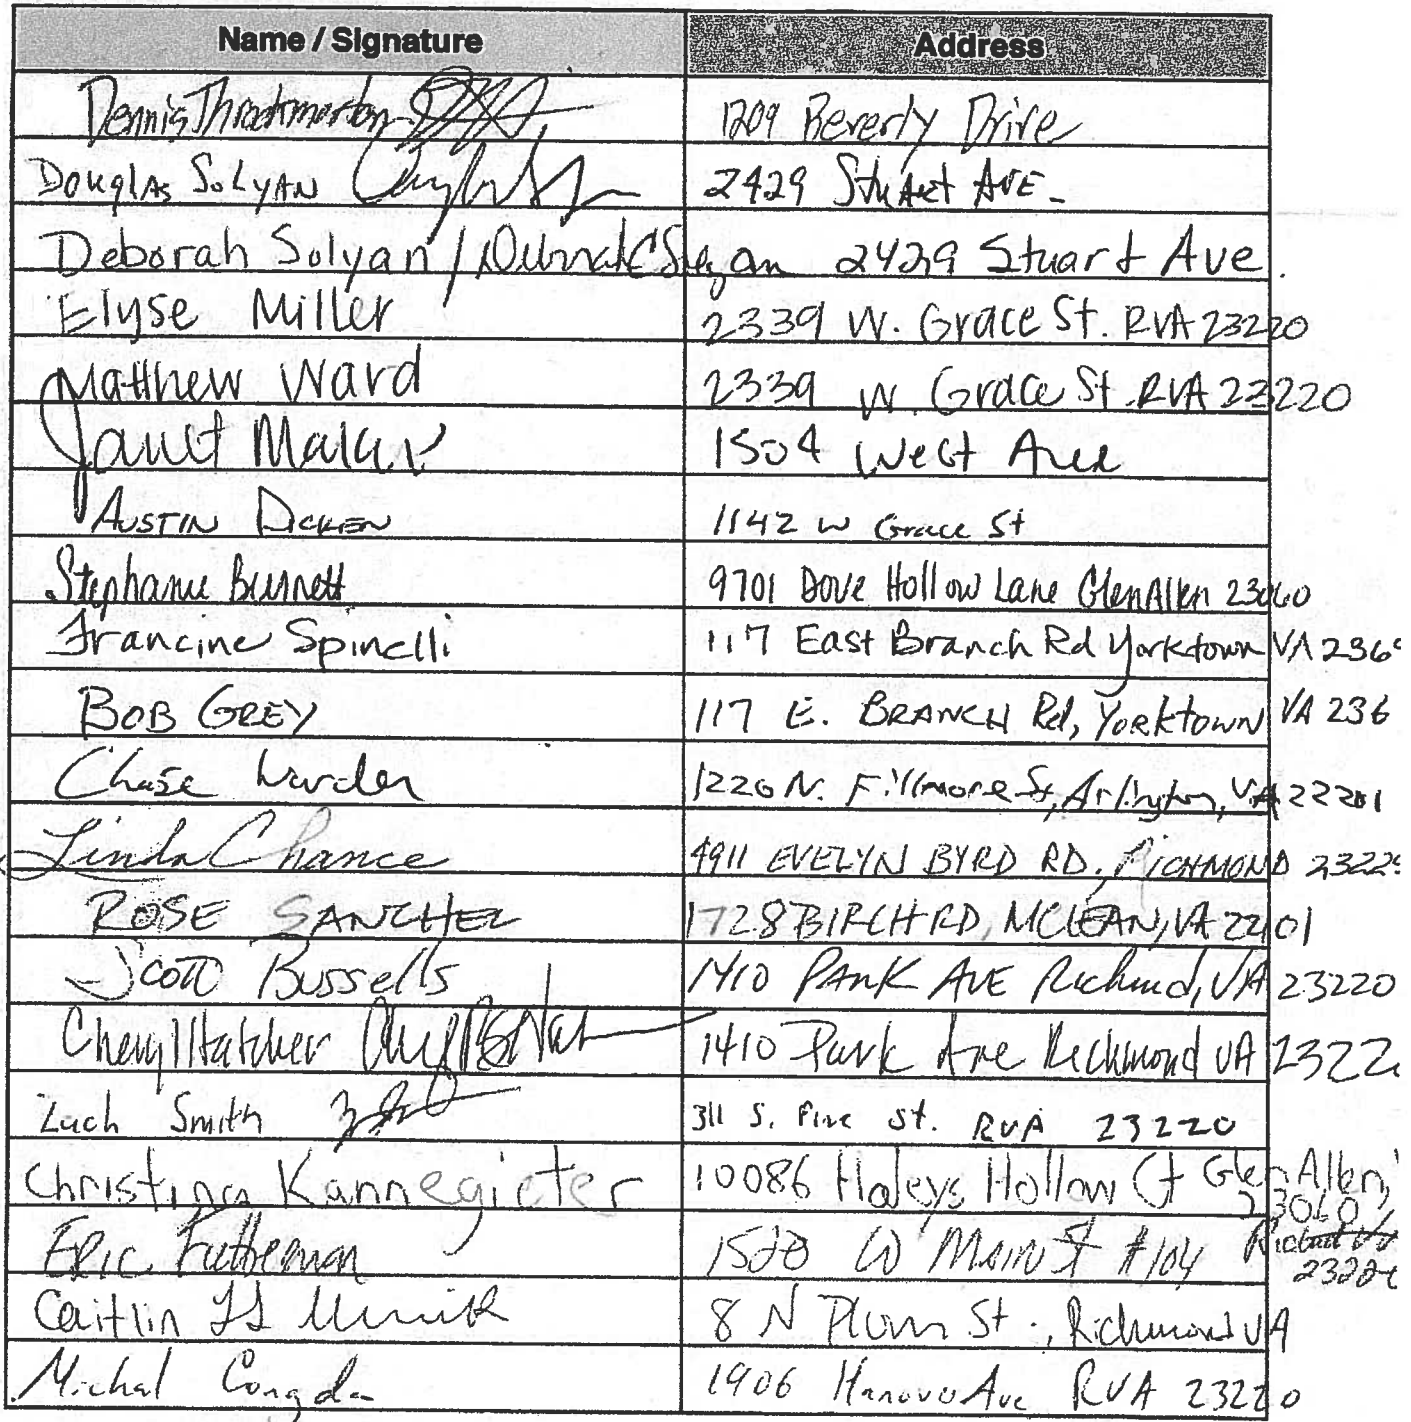 Name / Signature Address
Dennis Throckmorton 1209 Beverly Drive
Douglas Solyan 2429 Stuart Ave.
Deborah Solyan / Deborah C Solyan 2429 Stuart Ave.
Elyse Miller 2339 W. Grace St. RVA 23220
Matthew Ward 2339 W. Grace St. RVA 23220
Janet 1504 West Ave
Austin Dicken 1142 W Grace St
Stephanie Burnett 9701 Dove Hollow Lane Glen Allen 23060
Francine Spinelli 117 East Branch Rd Yorktown VA 2369
BOB GREY 117 E. BRANCH Rd, YORKTOWN VA 236
Chase 1220 N. Fillmore St, Arlington, VA 22201
Linda Chance 4911 EVELYN BYRD RD., RICHMOND 23229
ROSE SANCHEZ 1728 BIRCH RD, MCLEAN, VA 22101
Scott Bussells 1410 PARK AVE Richmd, VA 23220
Cheryl Hatcher 1410 Park Ave Richmond VA 2322
Zach Smith 311 S. Pine St. RVA 23220
Christina Kannegieter 10086 Haleys Hollow Ct Glen Allen,
23060
Eric 1520 W Main St #104
Caitlin 8 N Plum St., Richmond VA
Michal 1906 Hanover Ave RVA 23220